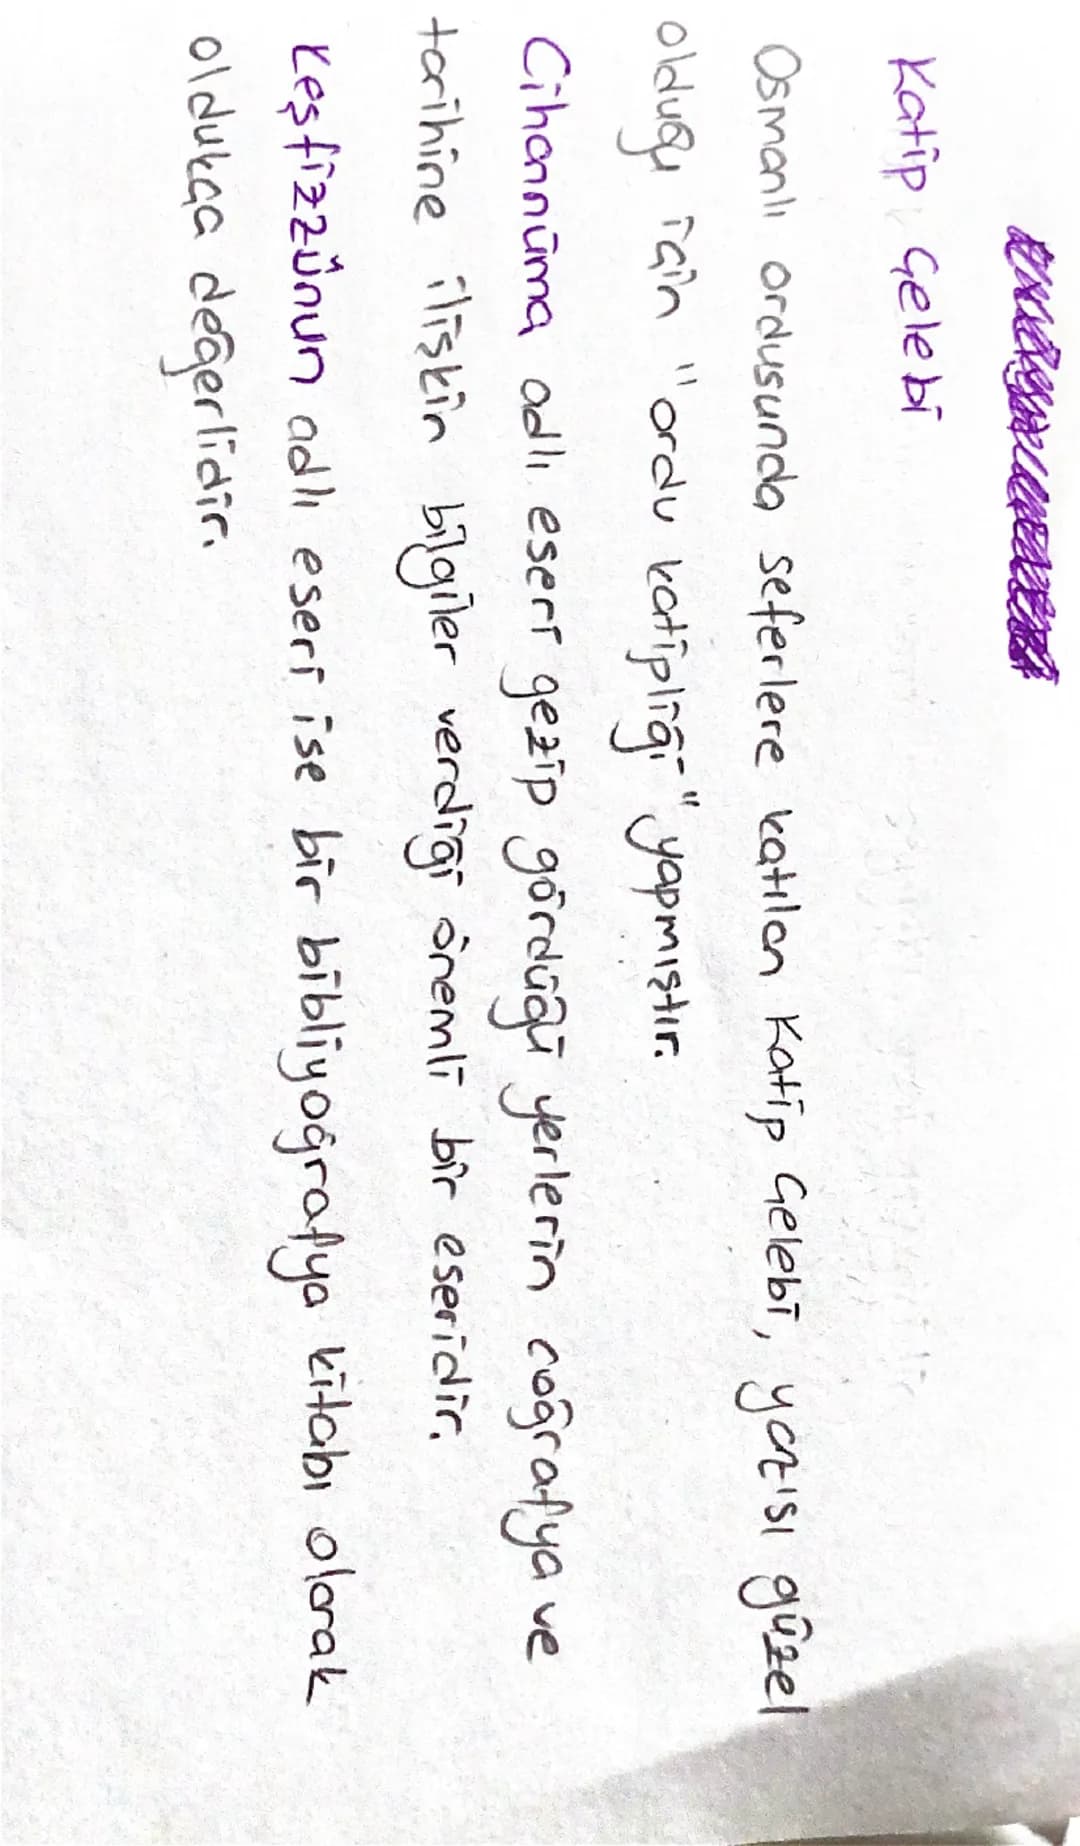 Katip Çelebi
Osmanlı ordusunda seferlere katılan Katip Çelebi, yazısı güzel
olduğu için "ordu katipliği" yapmıştır.
Cihannüma adlı eseri gezip gördüğü yerlerin coğrafya ve
tarihine ilişkin bilgiler verdiği önemli bir eseridir.
Keşfizzünun adlı eseri ise bir bibliyoğrafya kitabı olarak
oldukça değerlidir.